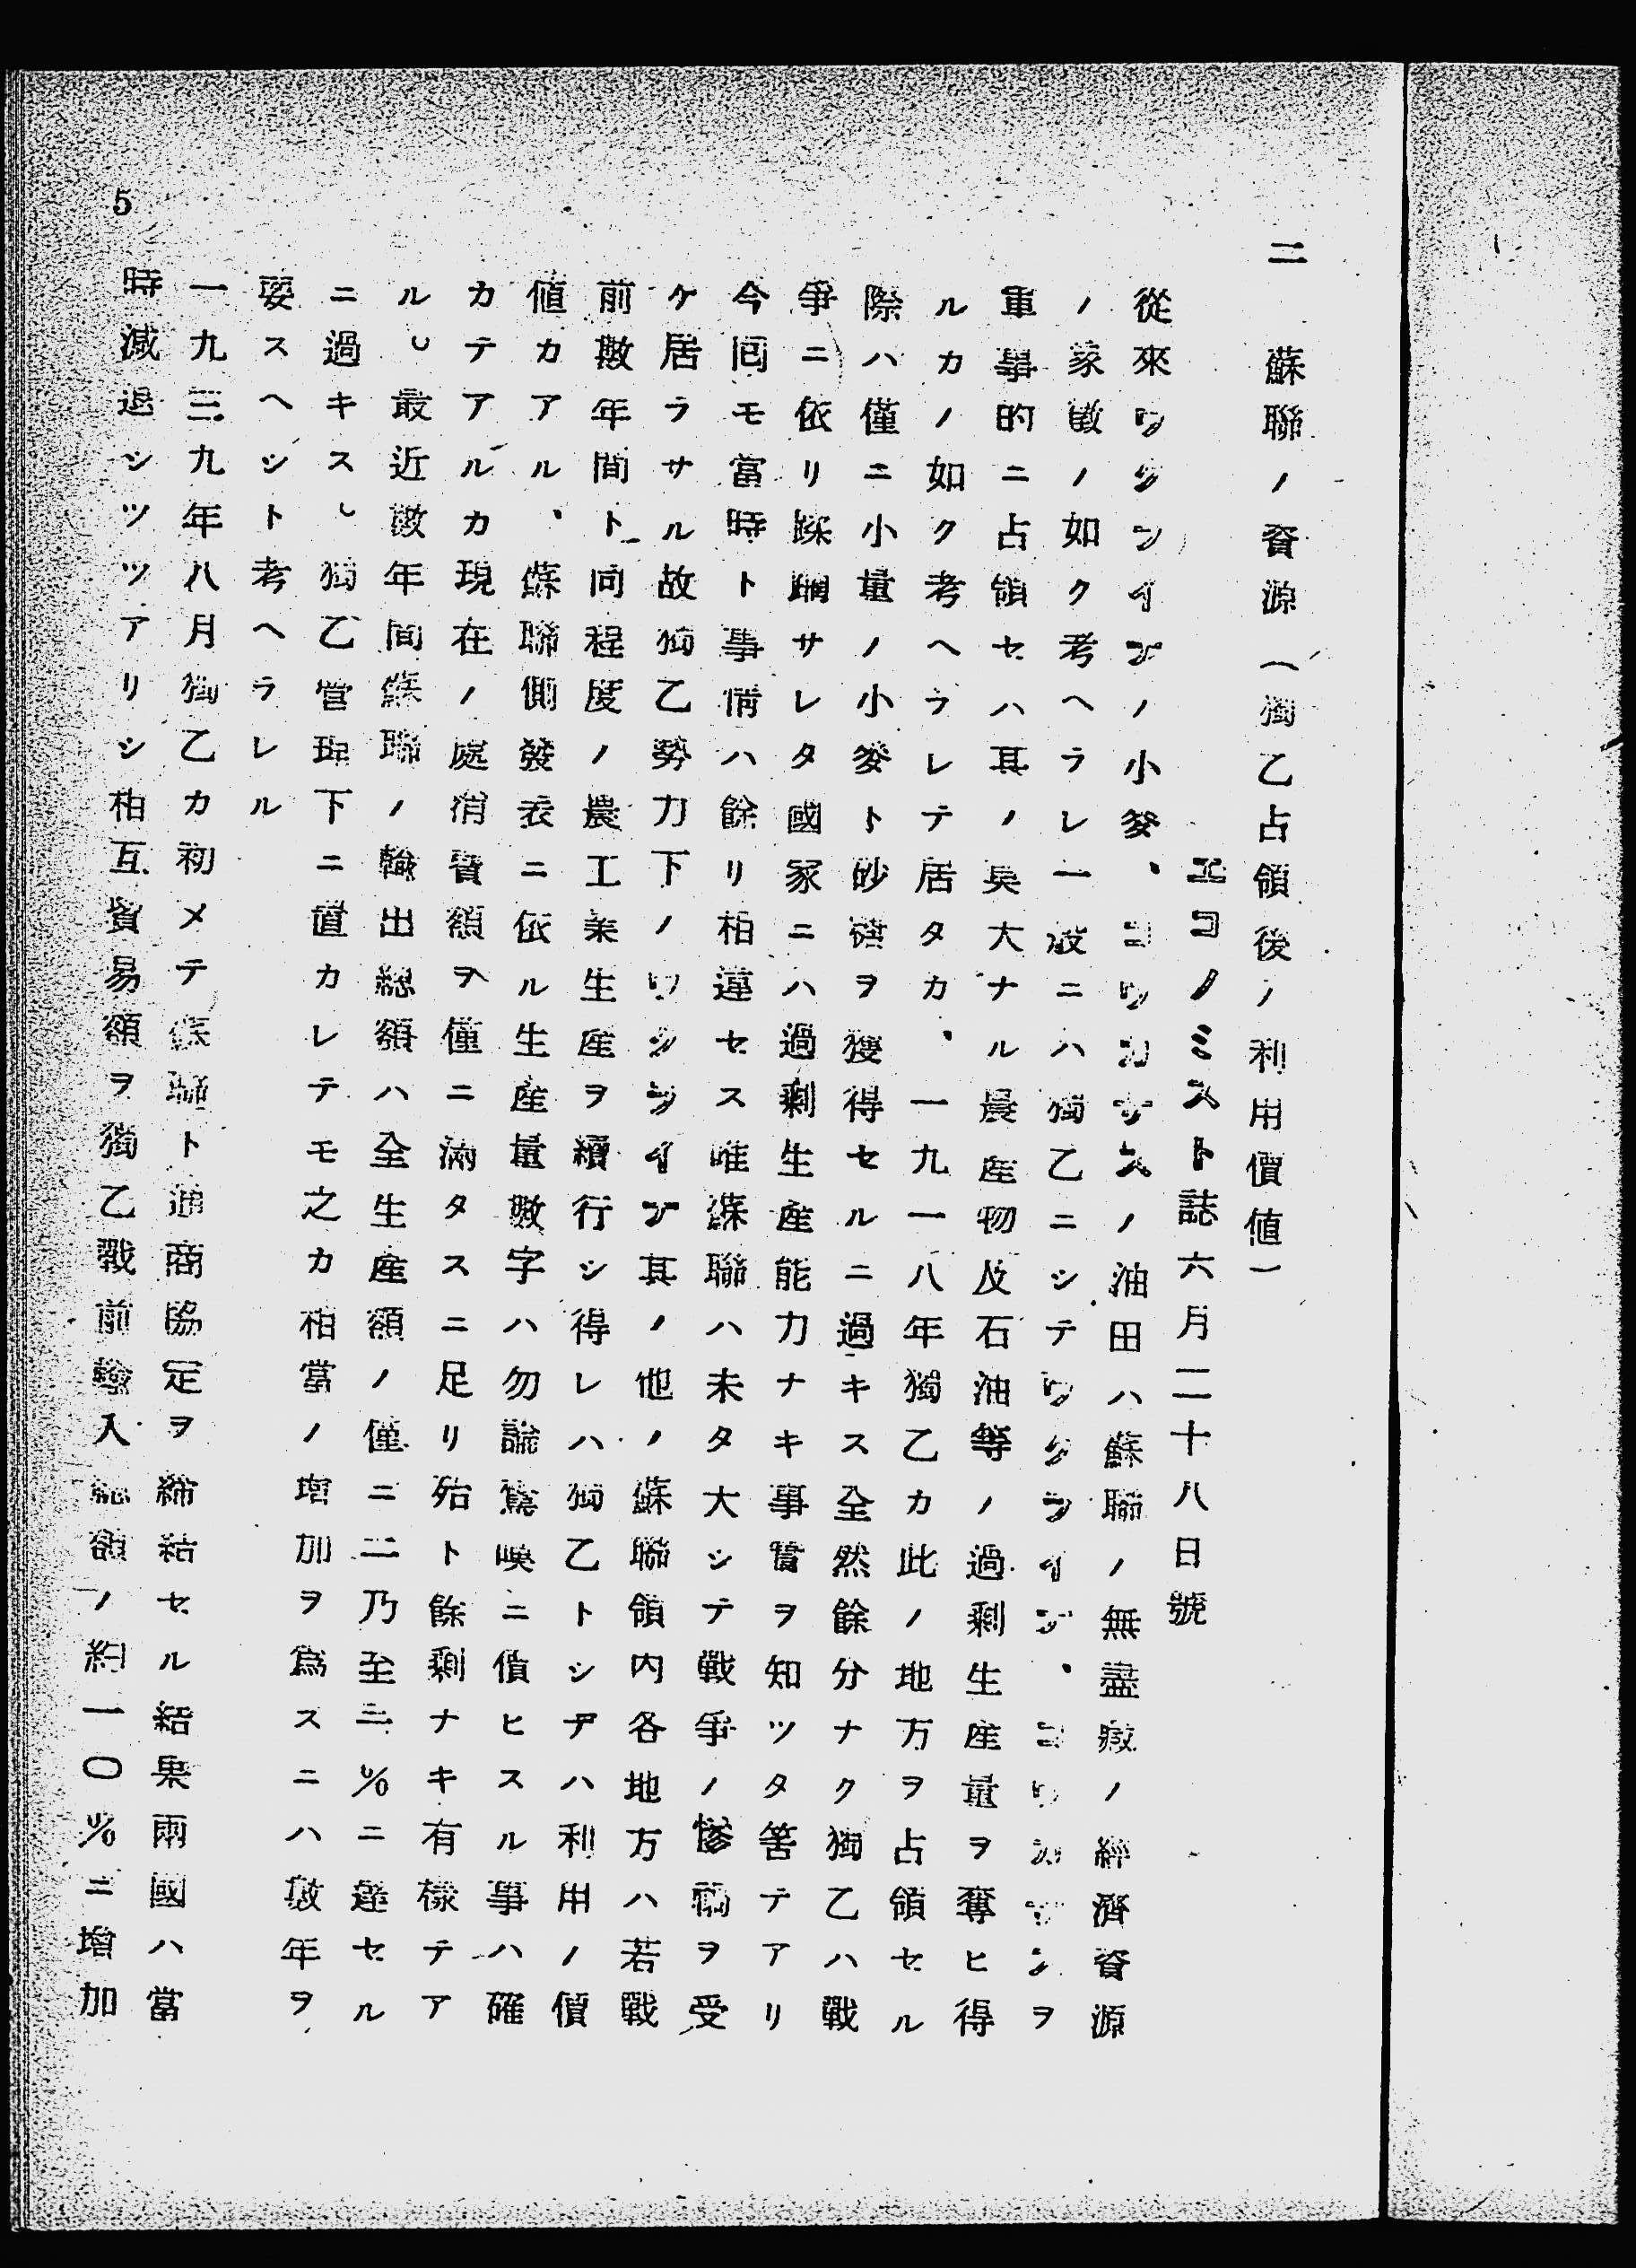 二　蘇聯ノ資源（獨乙占領後ノ利用價値）
エコノミスト誌六月二十八日號
從來ウクライナノ小麥、コウカサスノ油田ハ蘇聯ノ無盡藏ノ經濟資源
ノ象徴ノ如ク考ヘラレ一般ニハ獨乙ニシテウクライナ、コウカサンヲ
軍事的ニ占領セハ其ノ莫大ナル農産物及石油等ノ過剩生産量ヲ奪ヒ得
ルカノ如ク考ヘラレテ居タカ、一九一八年獨乙カ此ノ地方ヲ占領セル
際ハ僅ニ小量ノ小麥ト砂糖ヲ獲得セルニ過キス全然餘分ナク獨乙ハ戰
爭ニ依リ蹂躙サレタ國家ニハ過剩生産能力ナキ事實ヲ知ツタ筈テアリ
今囘モ當時ト事情ハ餘リ相違セス唯蘇聯ハ未タ大シテ戰爭ノ慘禍ヲ受
ケ居ラサル故獨乙勢力下ノウクライナ其ノ他ノ蘇聯領内各地方ハ若戰
前數年間ト同程度ノ農工業生産ヲ續行シ得レハ獨乙トシテハ利用ノ價
値カアル、蘇聯側發表ニ依ル生産量數字ハ勿論驚喚ニ價ヒスル事ハ確
カテアルカ現在ノ處消費額ヲ僅ニ滿タスニ足リ殆ト餘剩ナキ有樣テア
ル、最近數年間蘇聯ノ輸出總額ハ全生産額ノ僅ニ二乃至三％ニ達セル
ニ過キス、獨乙管理下ニ置カレテモ之カ相當ノ増加ヲ爲スニハ數年ヲ
要スヘシト考ヘラレル
一九三九年八月獨乙カ初メテ蘇聯ト通商協定ヲ締結セル結果兩國ハ當
時減退シツツアリシ相互貿易額ヲ獨乙戰前輸入總額ノ約一〇％ニ増加
5